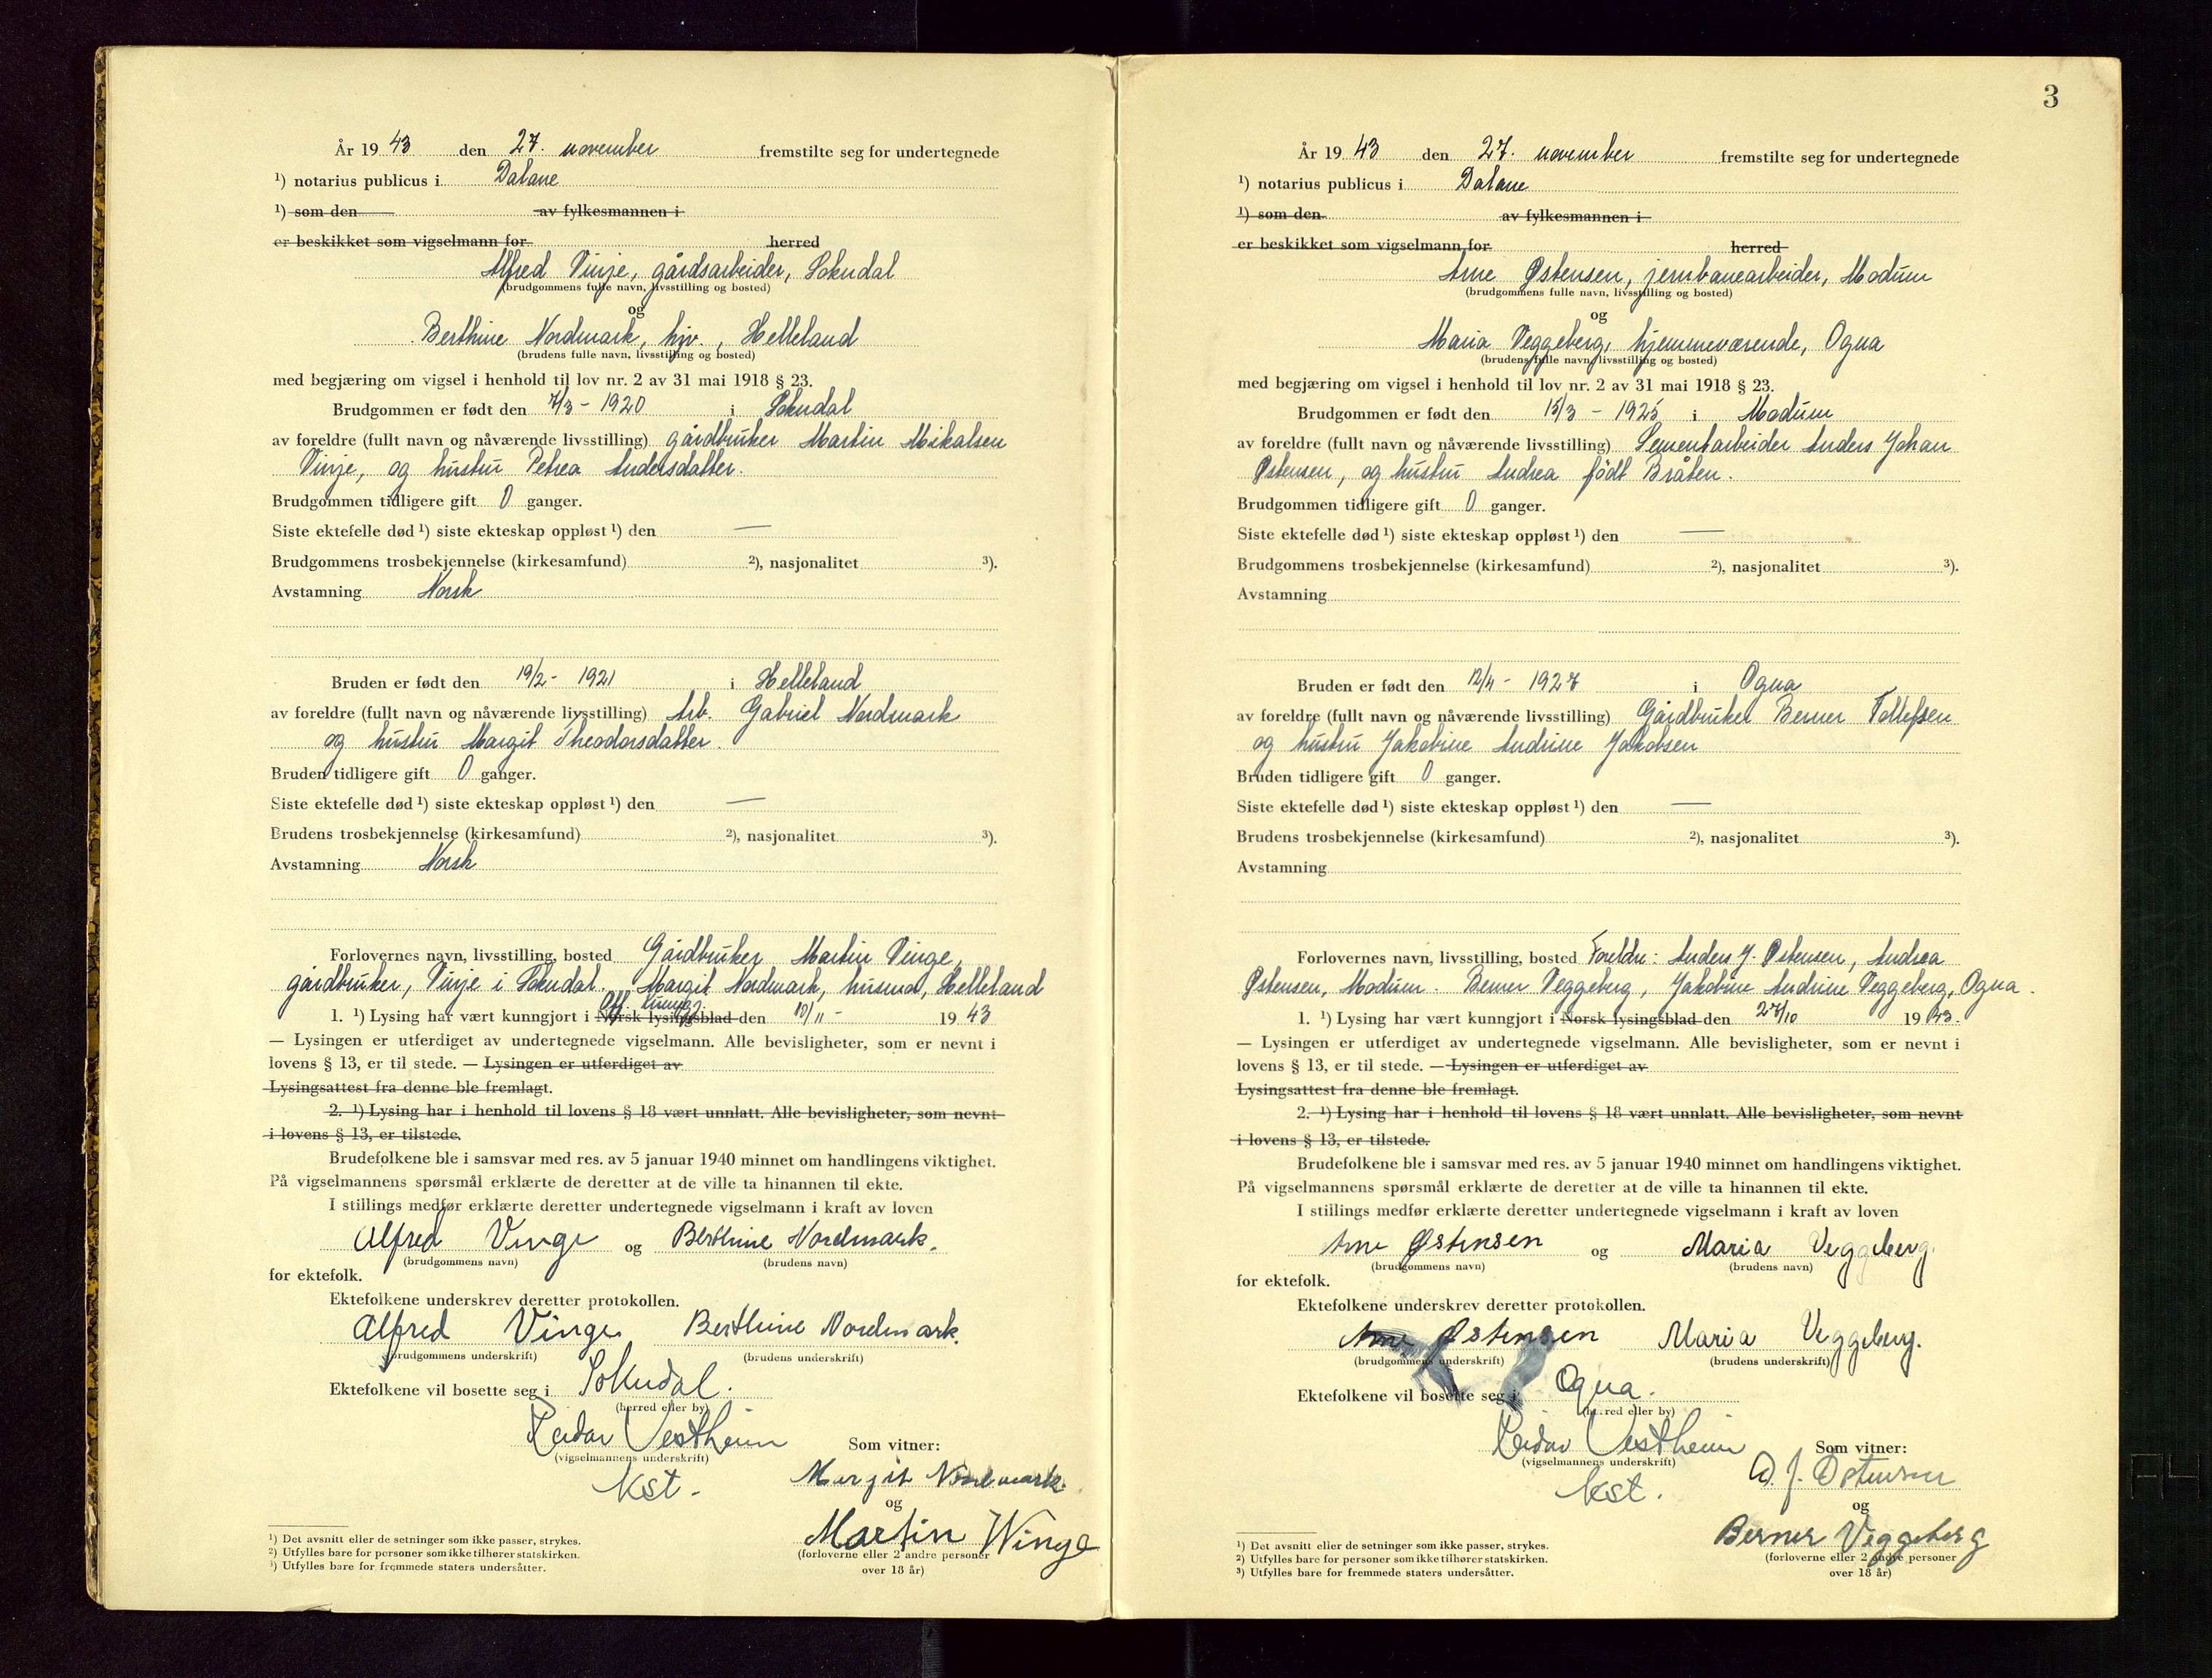 År 19 43 den 27. november fremstilte seg for undertegnede
¹) notarius publicus i Dalane
¹) som den av fylkesmannen i
er beskikket som vigselmann for herred
Alfred Vinje, gårdsarbeider, Sokndal
(brudgommens fulle navn, livsstilling og bosted)
og
Berthine Nordmark, hjv., Helleland
(brudens fulle navn, livsstilling og bosted)
med begjæring om vigsel i henhold til lov nr. 2 av 31 mai 1918 § 23.
Brudgommen er født den 7/3 - 1920 i Sokndal
av foreldre (fullt navn og nåværende livsstilling) gårdbruker Martin Mikalsen
Vinje, og hustru Petrea Andersdatter.
Brudgommen tidligere gift 0 ganger.
Siste ektefelle død ¹) siste ekteskap oppløst ¹) den —
Brudgommens trosbekjennelse (kirkesamfund) ²), nasjonalitet ³).
Avstamning Norsk
Bruden er født den 19/2 - 1921 i Helleland
av foreldre (fullt navn og nåværende livsstilling) Arb. Gabriel Nordmark
og hustru Margit Theodorsdatter.
Bruden tidligere gift 0 ganger.
Siste ektefelle død ¹) siste ekteskap oppløst ¹) den —
Brudens trosbekjennelse (kirkesamfund) ²), nasjonalitet ³).
Avstamning Norsk
Forlovernes navn, livsstilling, bosted Gårdbruker Martin Vinge,
gårdbruker, Vinje i Sokndal. Margit Nordmark, husmor, Helleland
1. ¹) Lysing har vært kunngjort i Norsk lysingsblad den 10/11 - 19 43
— Lysingen er utferdiget av undertegnede vigselmann. Alle bevisligheter, som er nevnt i
lovens § 13, er til stede. — Lysingen er utferdiget av
Lysingsattest fra denne ble fremlagt.
2. ¹) Lysing har i henhold til lovens § 18 vært unnlatt. Alle bevisligheter, som nevnt
i lovens § 13, er tilstede.
Brudefolkene ble i samsvar med res. av 5 januar 1940 minnet om handlingens viktighet.
På vigselmannens spørsmål erklærte de deretter at de ville ta hinannen til ekte.
I stillings medfør erklærte deretter undertegnede vigselmann i kraft av loven
Alfred Vinge og Berthine Nordmark.
(brudgommens navn) (brudens navn)
for ektefolk.
Ektefolkene underskrev deretter protokollen.
Alfred Vinge Berthine Nordmark.
(brudgommens underskrift) (brudens underskrift)
Ektefolkene vil bosette seg i Sokndal.
(herred eller by)
Reidar Vestheim Som vitner:
(vigselmannens underskrift)
Kst. Margit Nordmark.
og
Martin Winge
(forloverne eller 2 andre personer
over 18 år)
¹) Det avsnitt eller de setninger som ikke passer, strykes.
²) Utfylles bare for personer som ikke tilhører statskirken.
³) Utfylles bare for fremmede staters undersåtter.
3
År 19 43 den 27. november fremstilte seg for undertegnede
¹) notarius publicus i Dalane
¹) som den av fylkesmannen i
er beskikket som vigselmann for herred
Arne Østensen, jernbanearbeider, Modum
(brudgommens fulle navn, livsstilling og bosted)
og
Maria Veggeberg, hjemmeværende, Ogna
(brudens fulle navn, livsstilling og bosted)
med begjæring om vigsel i henhold til lov nr. 2 av 31 mai 1918 § 23.
Brudgommen er født den 15/3 - 1925 i Modum
av foreldre (fullt navn og nåværende livsstilling) Sementarbeider Anders Johan
Østensen, og hustru Andrea født Bråten.
Brudgommen tidligere gift 0 ganger.
Siste ektefelle død ¹) siste ekteskap oppløst ¹) den —
Brudgommens trosbekjennelse (kirkesamfund) ²), nasjonalitet ³).
Avstamning
Bruden er født den 12/4 - 1927 i Ogna
av foreldre (fullt navn og nåværende livsstilling) Gårdbruker Berner Tollefsen
og hustru Jakobine Andrine Jakobsen
Bruden tidligere gift 0 ganger.
Siste ektefelle død ¹) siste ekteskap oppløst ¹) den —
Brudens trosbekjennelse (kirkesamfund) ²), nasjonalitet ³).
Avstamning
Forlovernes navn, livsstilling, bosted Foreldre: Anders J. Østensen, Andrea
Østensen, Modum. Berner Veggeberg, Jakobine Andrine Veggeberg, Ogna.
1. ¹) Lysing har vært kunngjort i Norsk lysingsblad den 27/10 19 43.
— Lysingen er utferdiget av undertegnede vigselmann. Alle bevisligheter, som er nevnt i
lovens § 13, er til stede. — Lysingen er utferdiget av
Lysingsattest fra denne ble fremlagt.
2. ¹) Lysing har i henhold til lovens § 18 vært unnlatt. Alle bevisligheter, som nevnt
i lovens § 13, er tilstede.
Brudefolkene ble i samsvar med res. av 5 januar 1940 minnet om handlingens viktighet.
På vigselmannens spørsmål erklærte de deretter at de ville ta hinannen til ekte.
I stillings medfør erklærte deretter undertegnede vigselmann i kraft av loven
Arne Østensen og Maria Veggeberg.
(brudgommens navn) (brudens navn)
for ektefolk.
Ektefolkene underskrev deretter protokollen.
Arne Østensen Maria Veggeberg.
(brudgommens underskrift) (brudens underskrift)
Ektefolkene vil bosette seg i Ogna.
(herred eller by)
Reidar Vestheim Som vitner:
(vigselmannens underskrift)
Kst. A. J. Østensen
og
Berner Veggeberg
(forloverne eller 2 andre personer
over 18 år)
¹) Det avsnitt eller de setninger som ikke passer, strykes.
²) Utfylles bare for personer som ikke tilhører statskirken.
³) Utfylles bare for fremmede staters undersåtter.